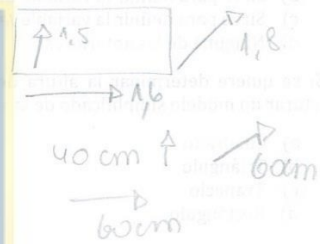 1,5
1,8
1,6
40 cm
60cm
60cm